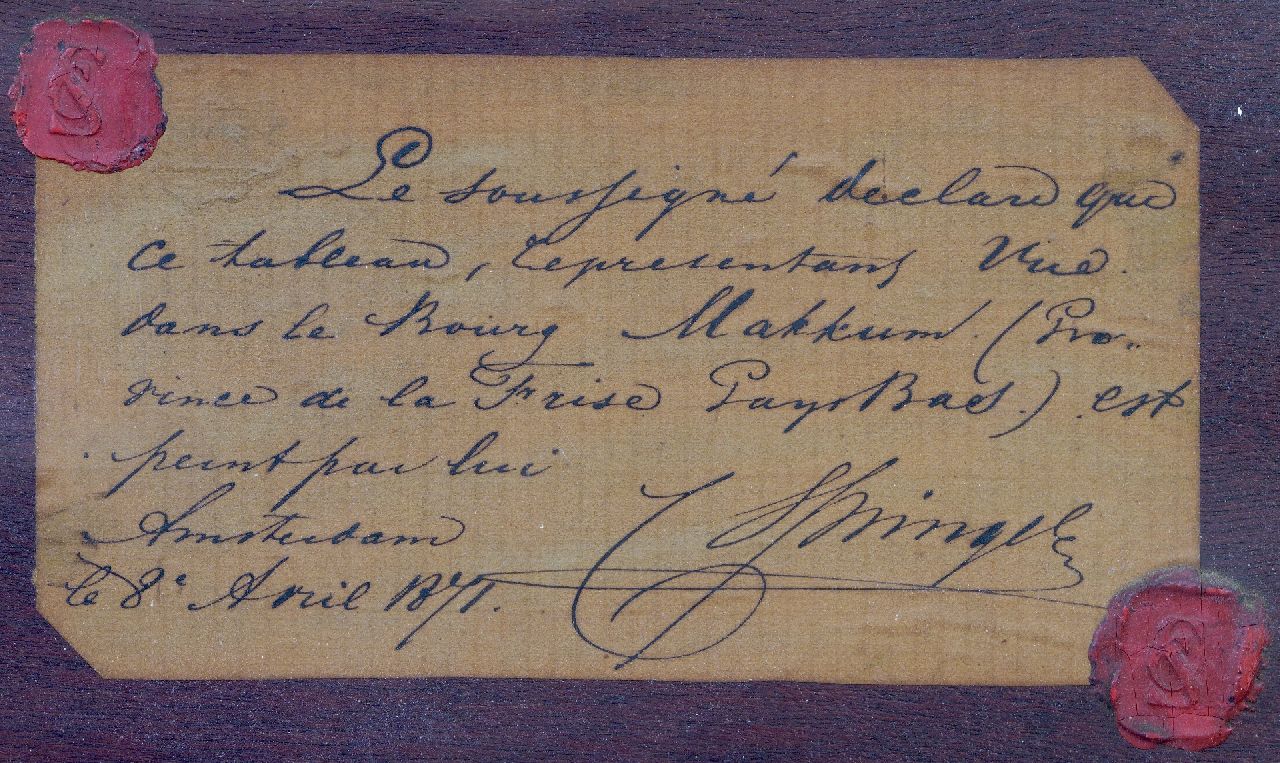 Le soussigné declare que
ce tableau, representant Vue
dans le Bourg Makkum. (Pro-
vince de la Frise Pays Bas.) est
peint par lui
Amsterdam
le 8e Avril 1871.
C Springer
CS
CS